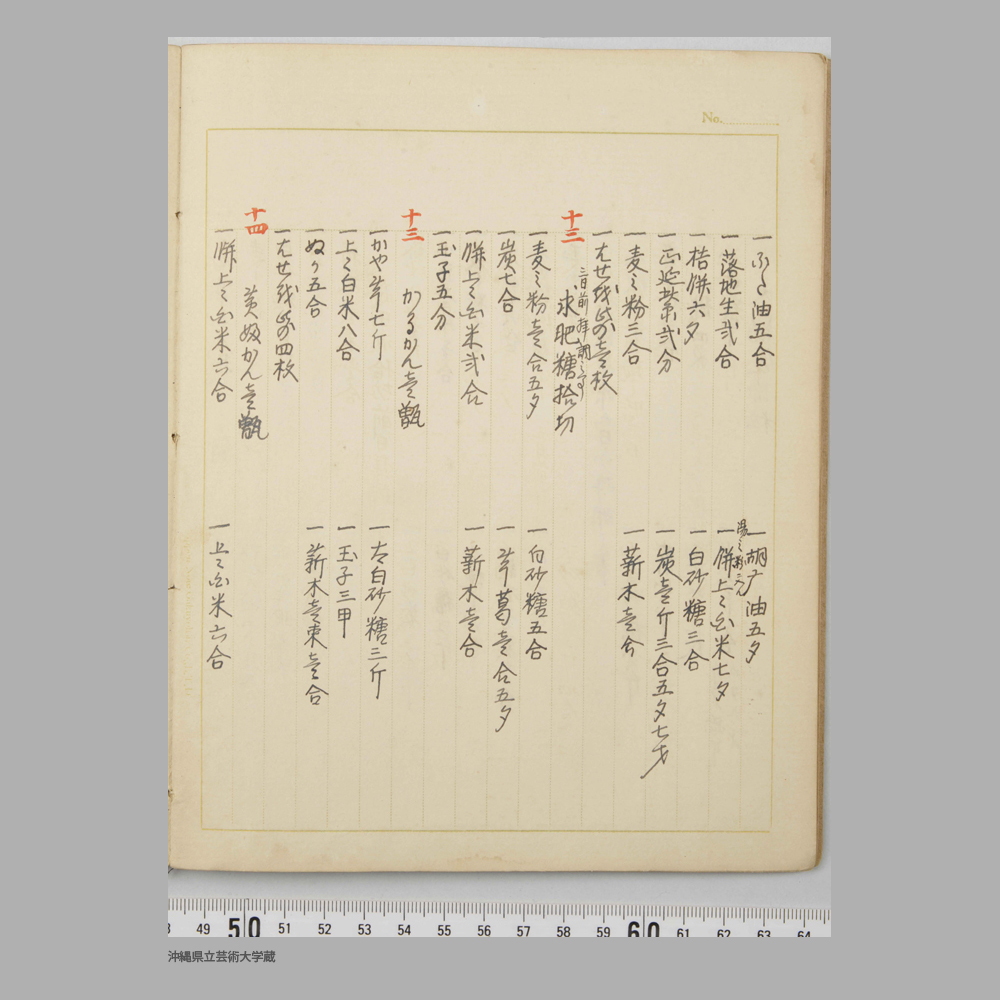 No.
一ふた油五合
一胡麻油五夕
一落地生弐合
一餅上々白米七夕
一桔餅六夕
一白砂糖三合
一正延紫弐分
一炭壱斤三合五夕七才
一麦之粉三合
一薪木壱分
一はせを芭の壱枚
十二
三日前
求肥糖拾切
一麦之粉壱合五夕
一白砂糖五合
一炭七合
一芋葛壱合五夕
一餅上々白米弐合
一薪木壱合
一玉子五分
十三
かるかん壱甑
一かや芋七斤
一太白砂糖三斤
一上々白米八合
一玉子三甲
一ぬか五合
一薪木壱束壱合
一はせを芭の四枚
十四
黄奴かん壱甑
一餅上々白米六合
一上々白米六合
49 50 51 52 53 54 55 56 57 58 59 60 61 62 63 64
沖縄県立芸術大学蔵